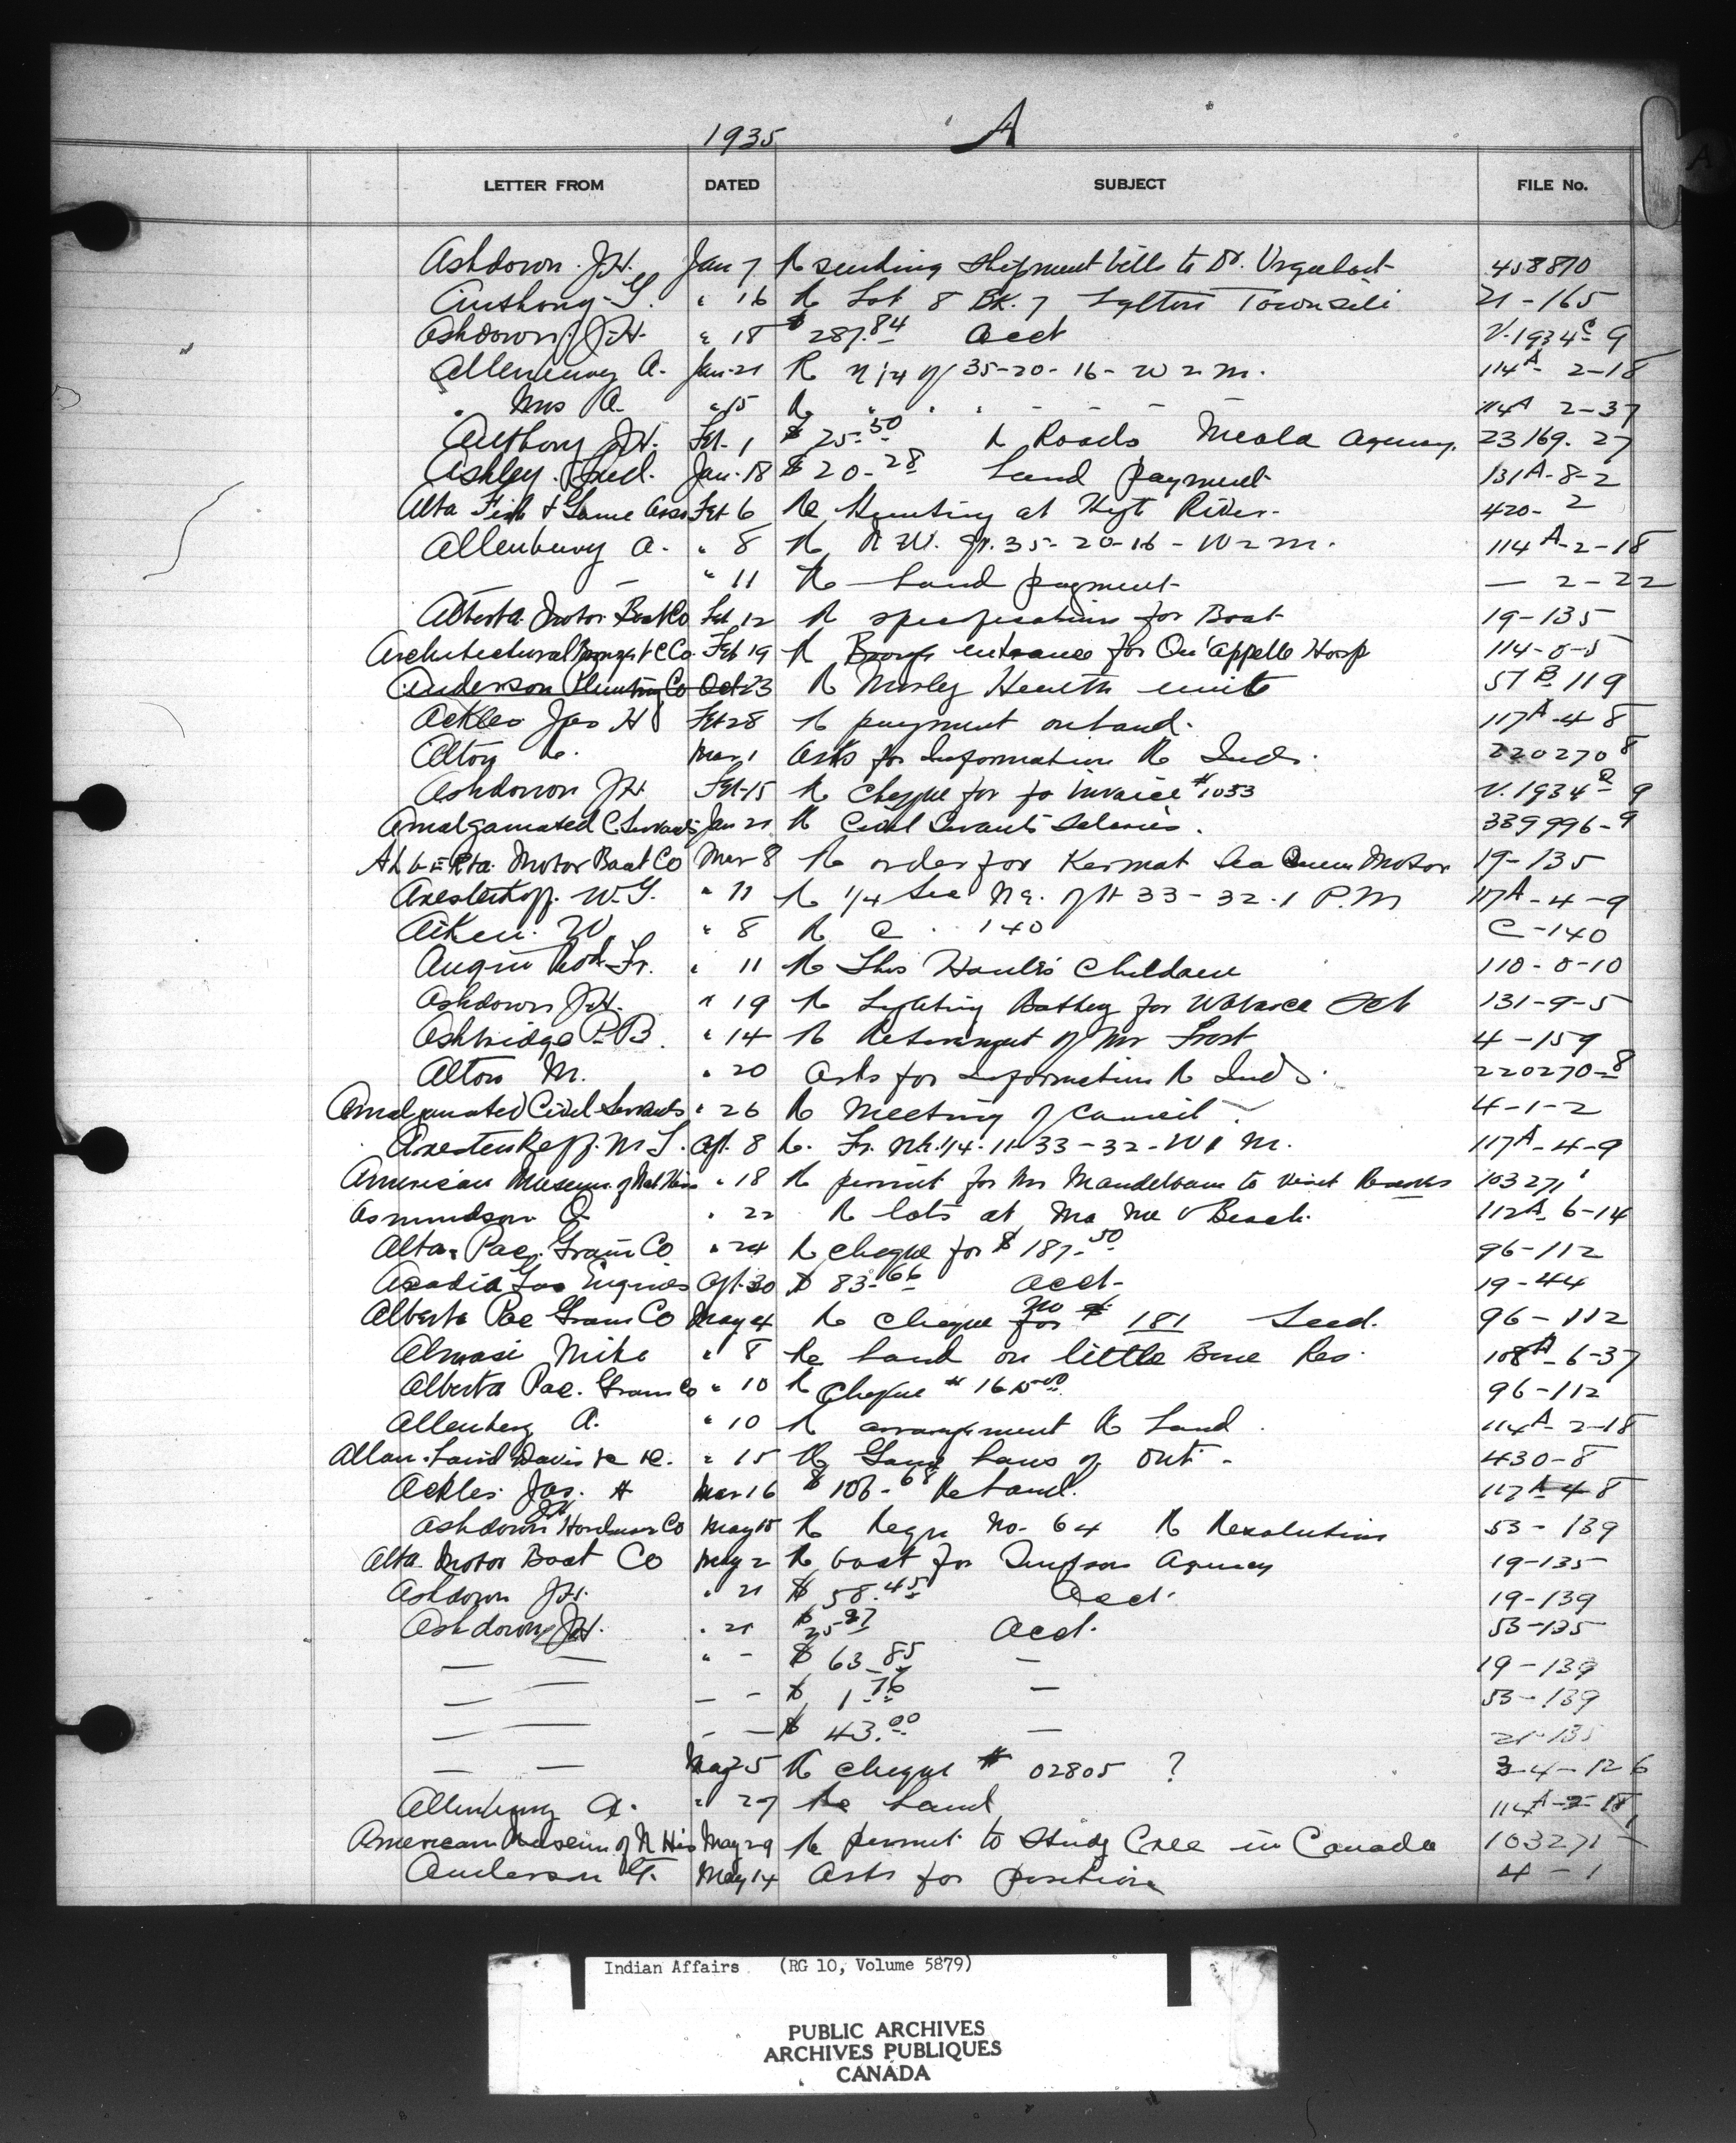 1935 A
LETTER FROM DATED SUBJECT FILE No.
Ashdown J.H. Jan 7 Re sending shipment bills to Dr. Urquhart 458870
Anthony G. " 16 Re Lot 8 BK. 7 Townsite 21-165
Ashdown J.H. " 18 $ 287.84 Acct V.1934C 9
Allenbury A. Jan-21 R N 1/4 of 35-20-16-W2m. 114A- 2-18
" Mrs A. " 15 Re " " " - - - - 114A 2-37
Anthony J.H. Feb. 1 $ 25.50 R Roads Agency. 23169. 27
Ashley. Fred. Jan. 18 $ 20.28 Land payment 131A-8-2
Alta Fish & Game Assn Feb 6 Re Hunting at River. 420-2
Allenbury A. " 8 R N.W. qr. 35-20-16-W2m. 114A-2-18
— — " 11 Re Land payment — 2-22
Alberta Motor Boat Co Feb 12 R specifications for Boat 19-135
Architectural Co. Feb 19 R Bronze entrance for Qu'appelle Hosp 114-0-5
Anderson Plumbing Co Oct 23 R Morley Health unit 57B 119
Ackles Jas H Feb 28 R payment on land. 117A-4-8
Alton Mar 1 Asks for Information R Inds. 220270 8
Ashdown J.H. Feb-15 R Cheque for invoice #1033 V.1934 9
Amalgamated C Servants Jan 21 R Civil Servants Salaries. 339996-9
Alberta Motor Boat Co Mar 8 Re order for Kermath Sea Queen Motor 19-135
W.G. " 11 R 1/4 Sec 33-32.1 P.M 117A-4-9
Aiken. W. " 8 R C. 140 C-140
" 11 R Children 110-0-10
Ashdown J.H. " 19 R Lighting Battery for 131-9-5
Ashbridge P.B. " 14 R Retirement of Mr Frost 4-159
Alton M. " 20 Asks for information R Inds. 220270-8
Amalgamated Civil Servants " 26 R Meeting of Council 4-1-2
Ap. 8 R. Fr. 1/4. 11-33-32-W1M. 117A-4-9
American Museum of Nat His " 18 R permit for Mr Mandelbaum to visit Reserves 103271
Asmundson O. " 22 R lots at Ma Me O Beach. 112A 6-14
Alta. Pac. Grain Co " 24 R cheque for $ 187.50 96-112
Acadia Gas Engines Ap. 30 $ 83.66 Acct- 19-44
Alberta Pac Grain Co May 4 R Cheque for no # 181 Seed. 96-112
Almasi Mike " 8 Re Land on little Bone Res. 108A-6-37
Alberta Pac. Grain Co " 10 R Cheque # 96-112
Allenberg A. " 10 R arrangement R Land. 114A-2-18
Allan. Laird Davis " 15 R Game Laws of Ont- 430-8
Ackles. Jas. H Mar 16 $ 106-68 Re Land. 117A-4 8
Ashdown J.H. Hardware Co May 15 R Requ No. 64 R 53-139
Alta. Motor Boat Co May 2 R boat for Simpson Agency 19-135
Ashdown J.H. " 21 $ 58.45 Acct. 19-139
Ashdown J.H. " 21 $ Acct. 53-135
— — " - $ 63.85 — 19-139
— — — - $ 1.76 — 53-139
— — - — $ 43.00 — 21-135
— — May 25 R cheque # 02805 ?
Allenbury A. " 27 Re Land 114A-2-18
American Museum of N His May 29 R permit to Study Cree in Canada 103271-1
Anderson G. May 14 Asks for position 4-1
Indian Affairs (RG 10, Volume 5879)
PUBLIC ARCHIVES
ARCHIVES PUBLIQUES
CANADA